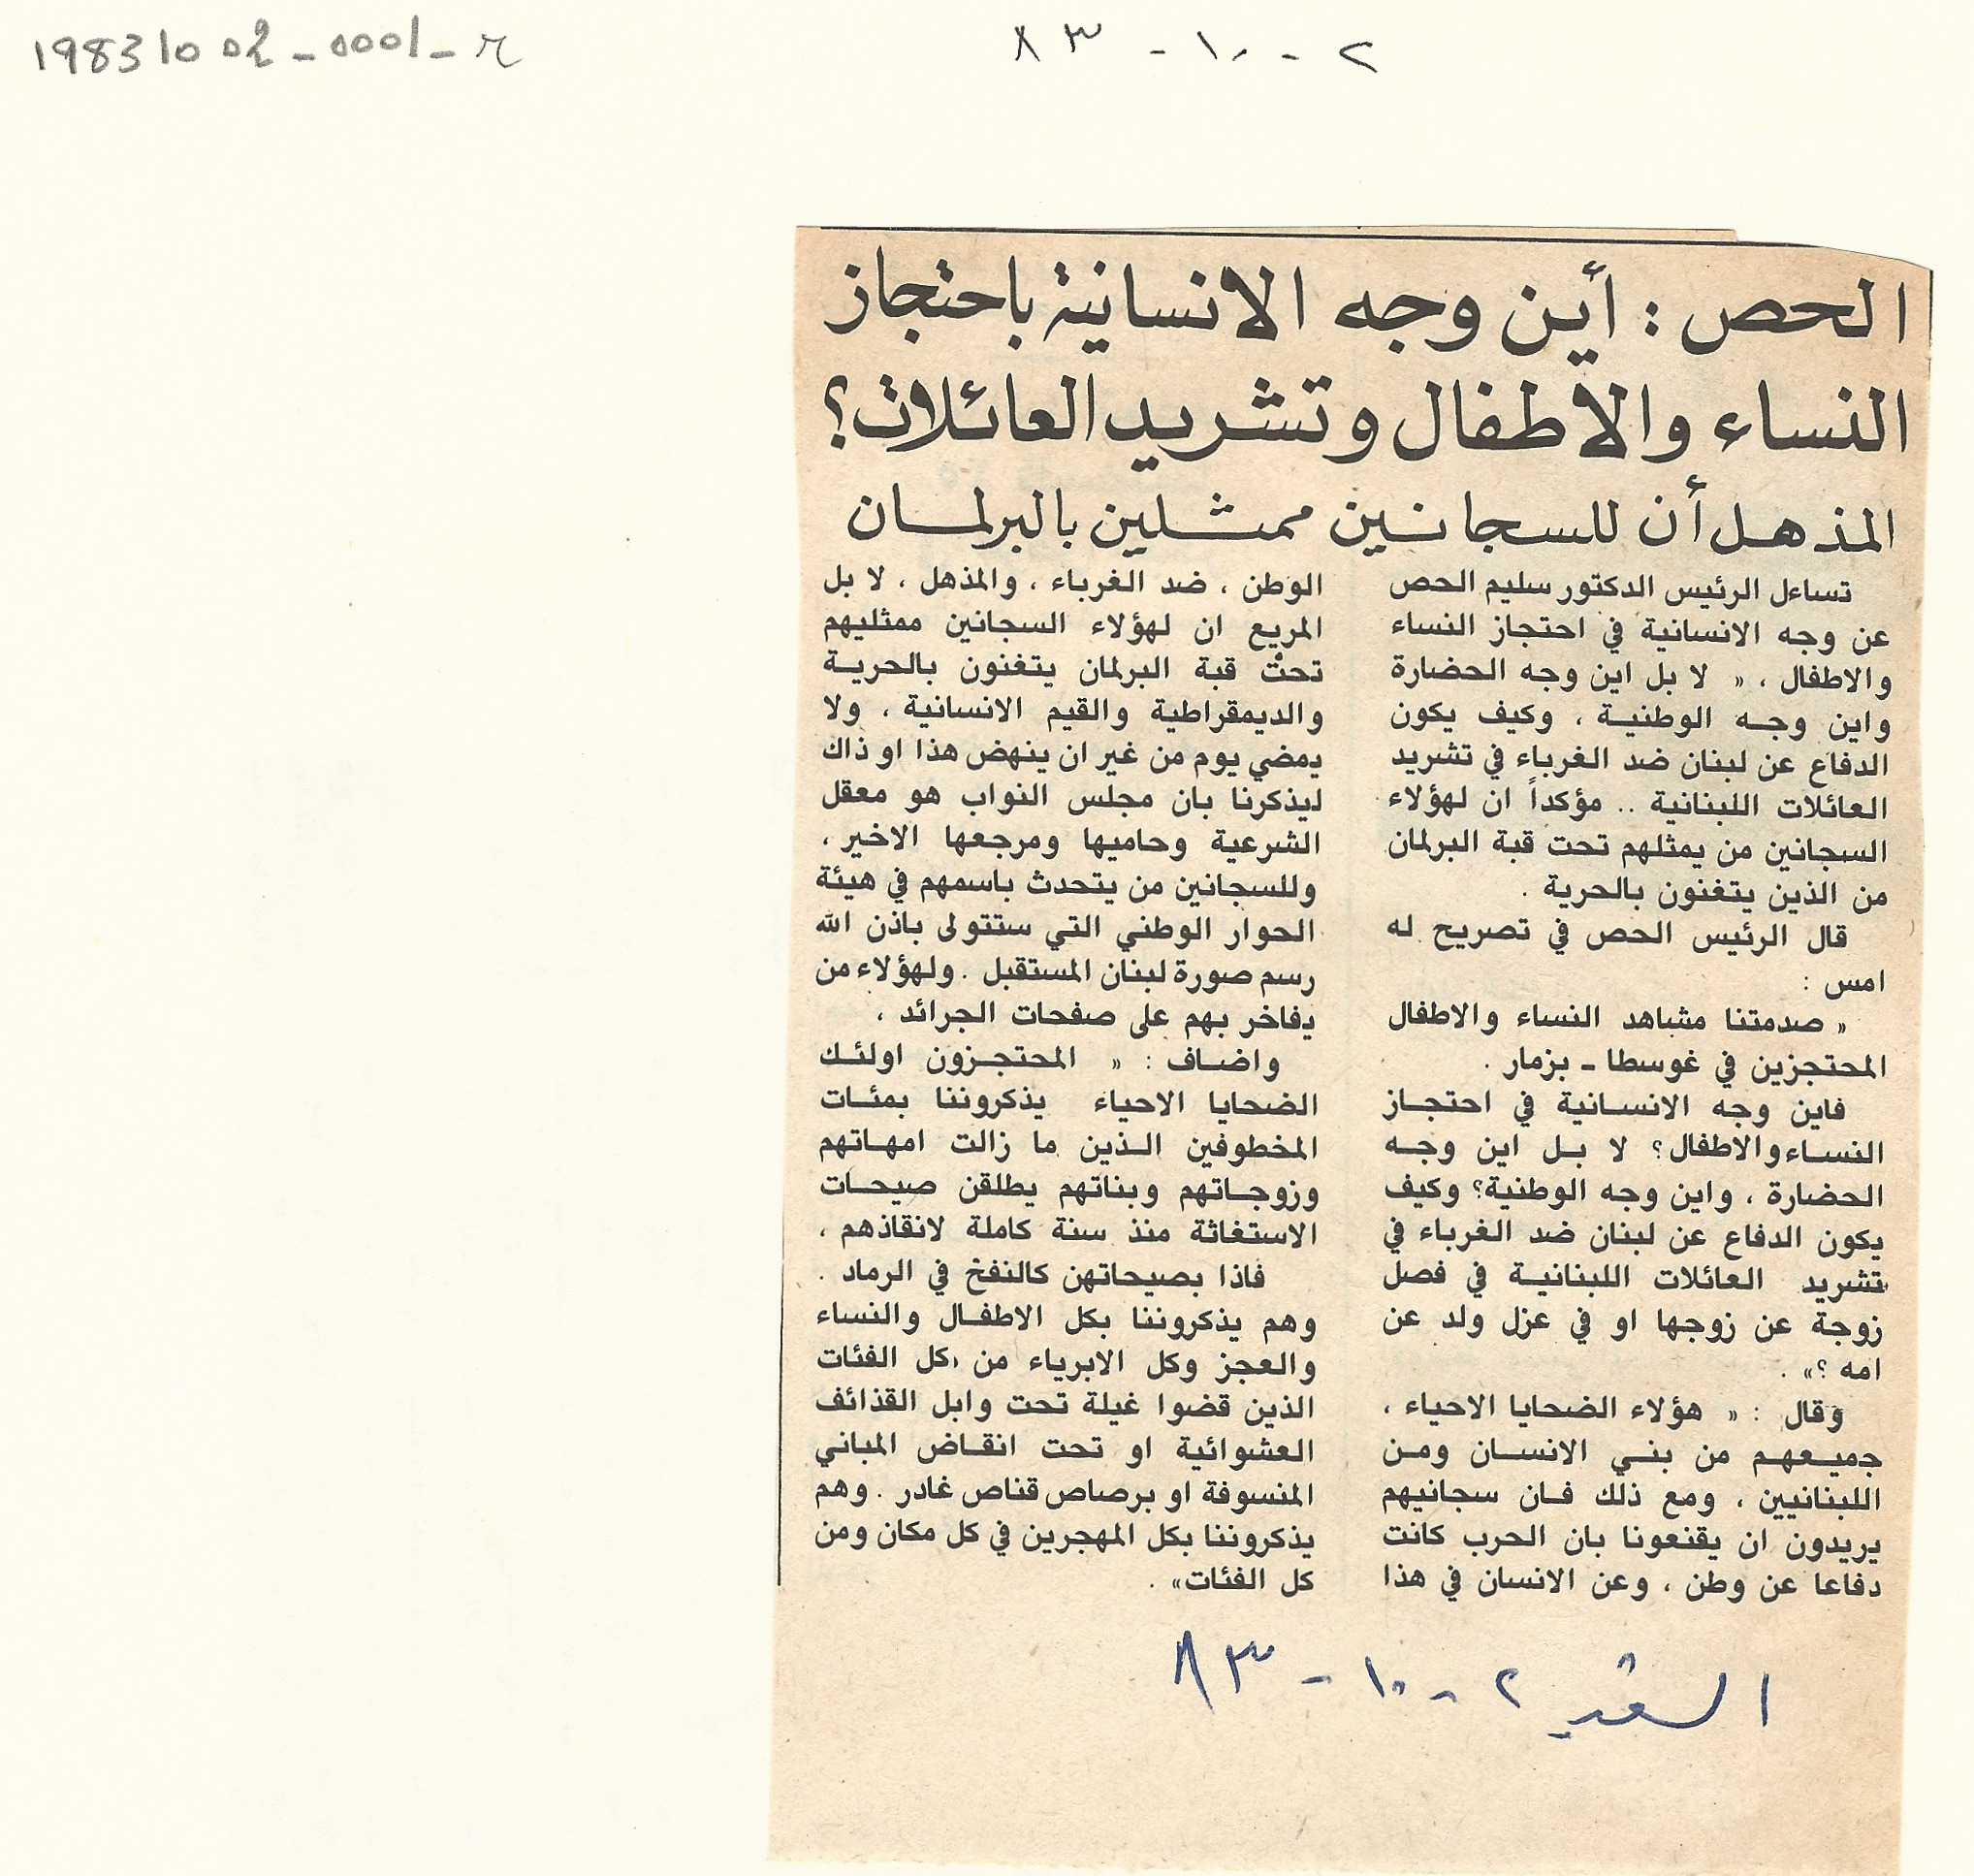 19831002_0001_م
٢ - ١٠ - ٨٣
الحص : أين وجه الانسانية باحتجاز
النساء والاطفال وتشريد العائلات؟
المذهل أن للسجانين ممثلين بالبرلمان
تساءل الرئيس الدكتور سليم الحص
عن وجه الانسانية في احتجاز النساء
والاطفال ، « لا بل اين وجه الحضارة
واين وجه الوطنية ، وكيف يكون
الدفاع عن لبنان ضد الغرباء في تشريد
العائلات اللبنانية .. مؤكداً ان لهؤلاء
السجانين من يمثلهم تحت قبة البرلمان
من الذين يتغنون بالحرية .
قال الرئيس الحص في تصريح له
امس :
« صدمتنا مشاهد النساء والاطفال
المحتجزين في غوسطا ـ بزمار .
فاين وجه الانسانية في احتجاز
النساء والاطفال؟ لا بل اين وجه
الحضارة ، واين وجه الوطنية؟ وكيف
يكون الدفاع عن لبنان ضد الغرباء في
تشريد العائلات اللبنانية في فصل
زوجة عن زوجها او في عزل ولد عن
امه ؟» .
وقال : « هؤلاء الضحايا الاحياء ،
جميعهم من بني الانسان ومن
اللبنانيين ، ومع ذلك فان سجانيهم
يريدون ان يقنعونا بان الحرب كانت
دفاعا عن وطن ، وعن الانسان في هذا
الوطن ، ضد الغرباء ، والمذهل ، لا بل
المريع ان لهؤلاء السجانين ممثليهم
تحت قبة البرلمان يتغنون بالحرية
والديمقراطية والقيم الانسانية ، ولا
يمضي يوم من غير ان ينهض هذا او ذاك
ليذكرنا بان مجلس النواب هو معقل
الشرعية وحاميها ومرجعها الاخير ،
وللسجانين من يتحدث باسمهم في هيئة
الحوار الوطني التي ستتولى باذن الله
رسم صورة لبنان المستقبل . ولهؤلاء من
يفاخر بهم على صفحات الجرائد ،
واضاف : « المحتجزون اولئك
الضحايا الاحياء يذكروننا بمئات
المخطوفين الذين ما زالت امهاتهم
وزوجاتهم وبناتهم يطلقن صيحات
الاستغاثة منذ سنة كاملة لانقاذهم ،
فاذا بصيحاتهن كالنفخ في الرماد .
وهم يذكروننا بكل الاطفال والنساء
والعجز وكل الابرياء من كل الفئات
الذين قضوا غيلة تحت وابل القذائف
العشوائية او تحت انقاض المباني
المنسوفة او برصاص قناص غادر . وهم
يذكروننا بكل المهجرين في كل مكان ومن
كل الفئات» .
السفير ٢ - ١٠ - ٨٣